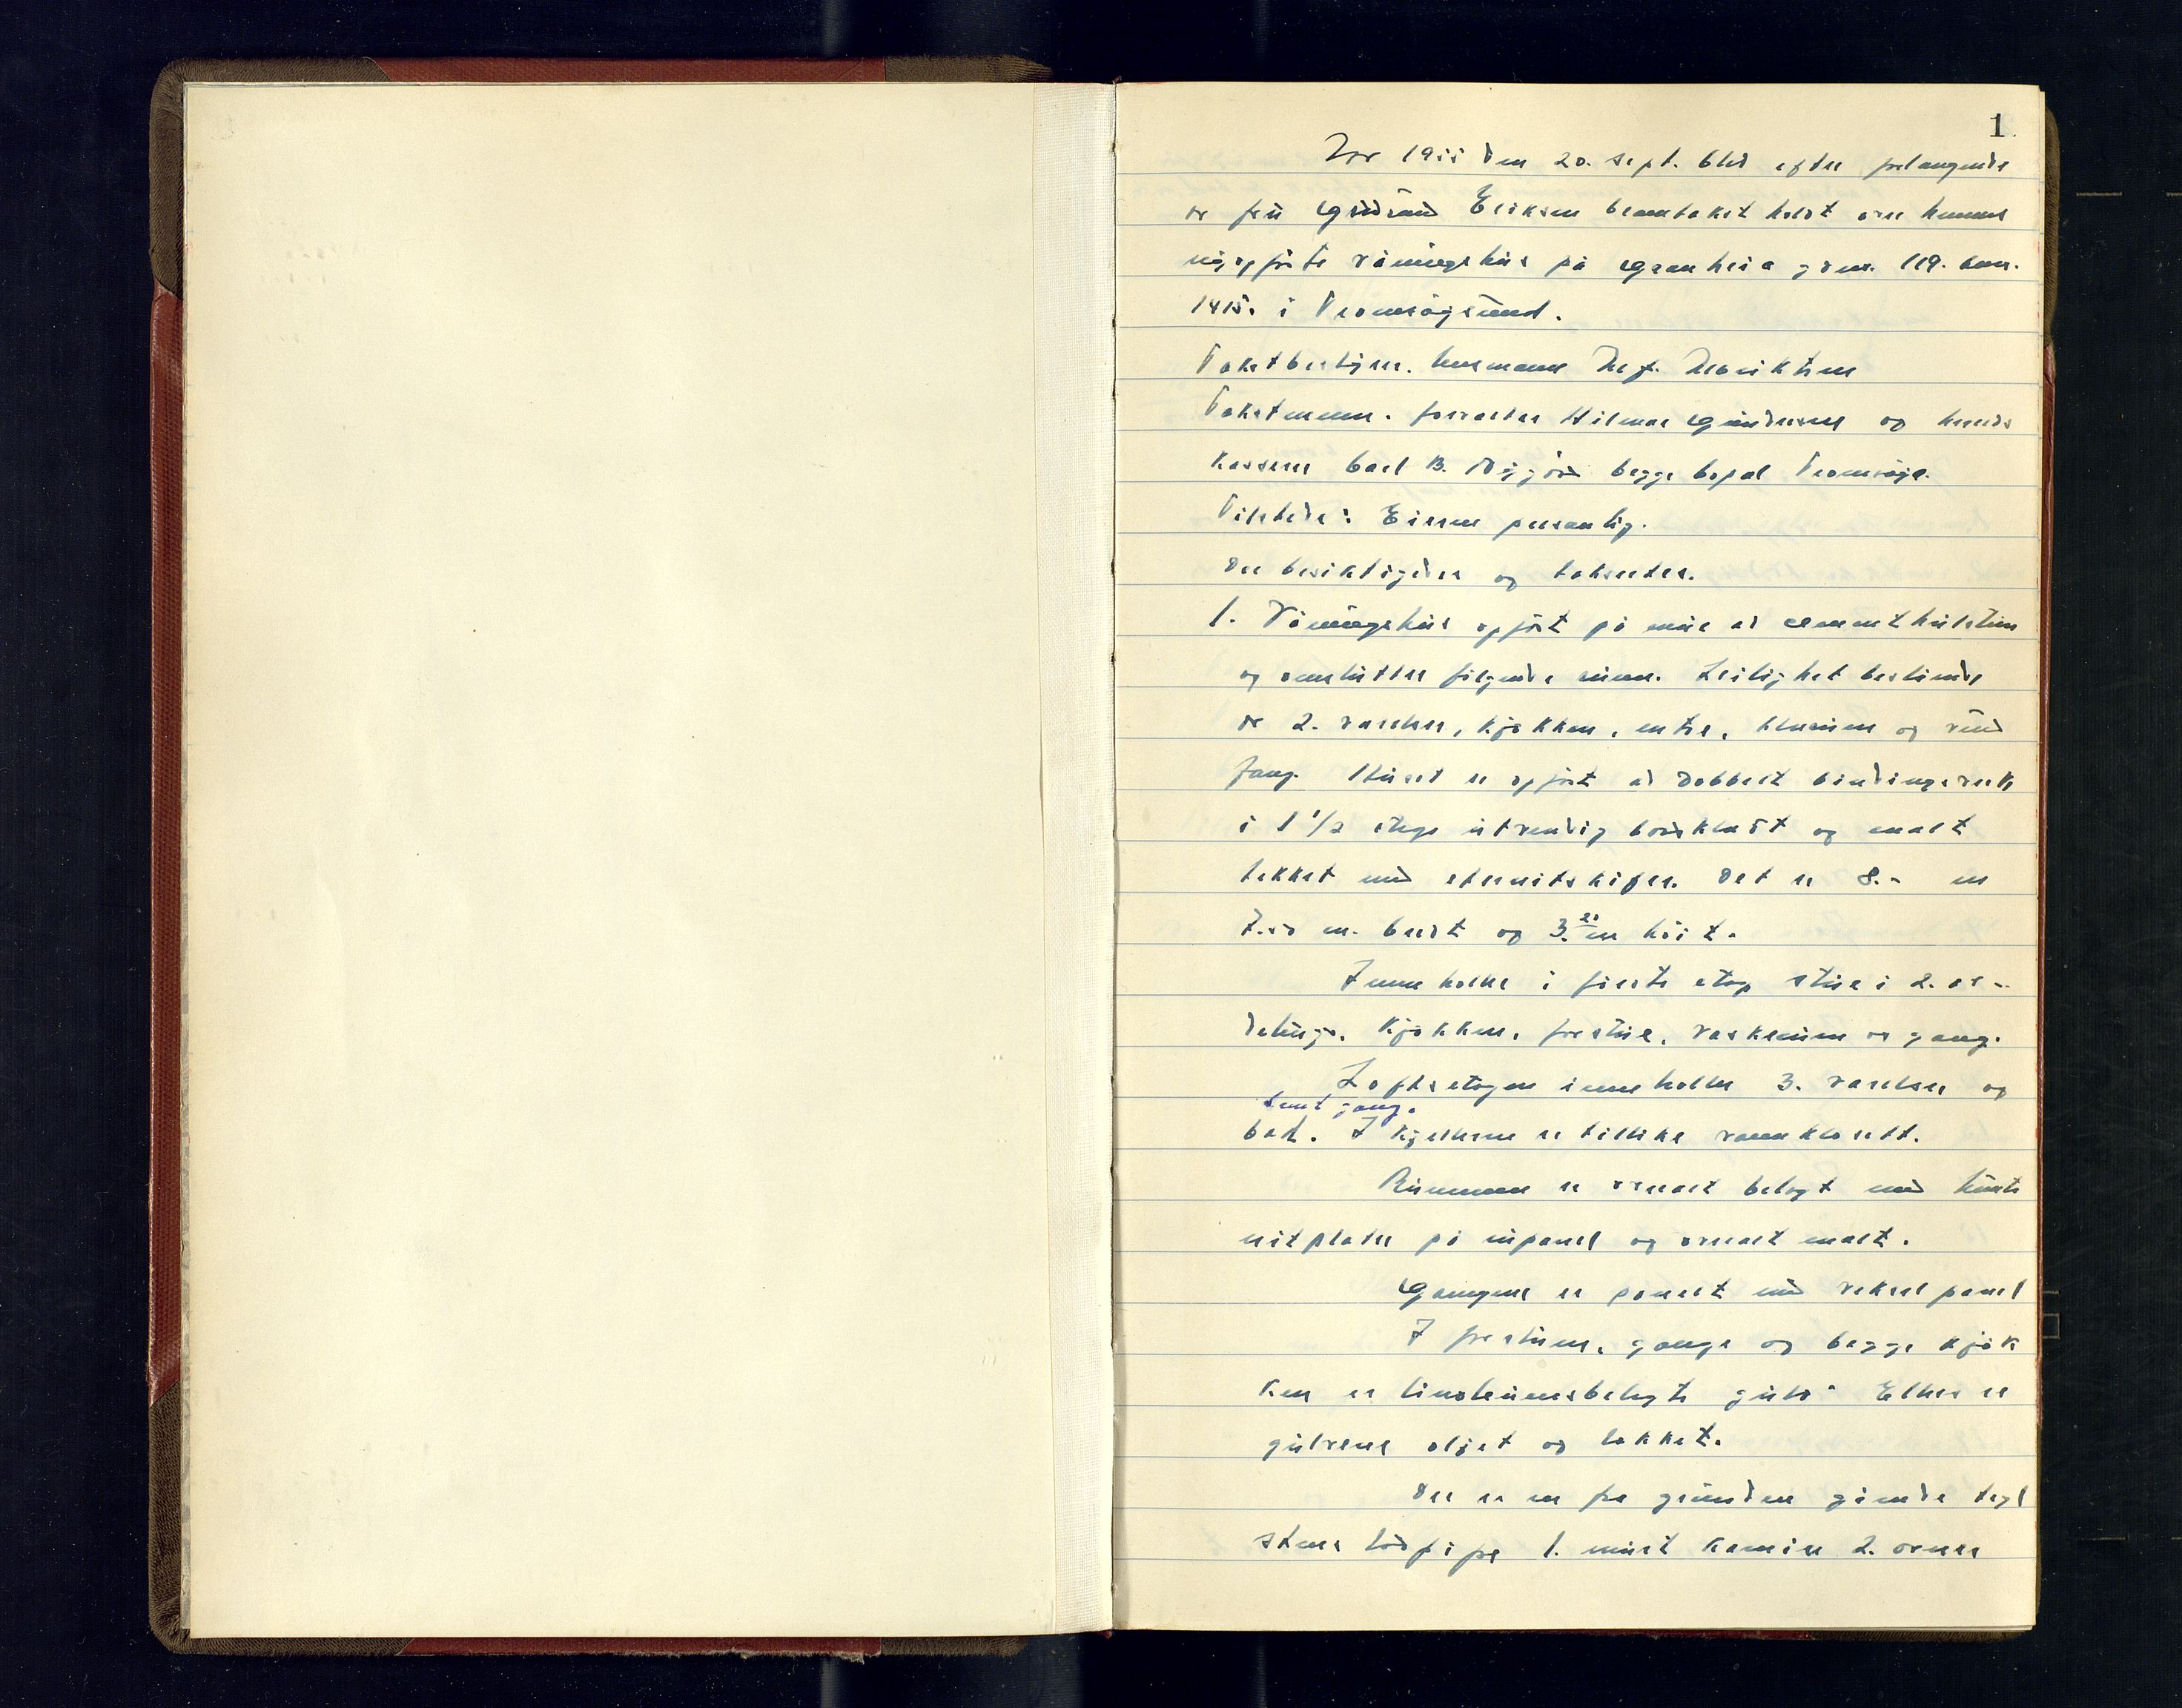 1.
År 1955 den 20. sept. blev efter forlangende
av fru Gudrun Eriksen branntakst holdt over hennes
nyopførte våningshus på Granheia gnr. 119. bnr.
1415. i Tromøysund.
Takstbestyrer. lensmann
Takstmenn. forvalter Hilmar Gundersen og herreds
kasserer Carl B. begge bopel Tromøya.
Tilstede: Eieren personlig.
Der besiktigedes og taksertes.
1. Våningshus opført på mur av cementhulsten
og omslutter følgende rum. Leilighet bestående
av 2. værelser, kjøkken, entre, klosrum og vind
fang. Huset er opført av dobbelt bindingsverk
i 1 1/2 etage utvendig bordkledt og malt
tekket med eternitskifer. Det er 8.- m
7.50 m. bredt og 3. m høit.
Inneholder i første etag stue i 2. av-
delinger. Kjøkken, forstue, vaskerum og gang.
Loftsetagen inneholder 3. værelser og
samt gang.
bad. I kjelleren er tillike vannklosett.
Rummene er overalt belagt med hunto
nitplater på rupanel og overalt malt.
Gangene er panelt med veksel panel
I forstuen, gange og begge kjøk
ken er linoleumsbelagte gulv. Ellers er
gulvene oljet og lakket.
Der er en fra grunden gående tegl
stens lødpipe 1. muret kamin 2. ovner